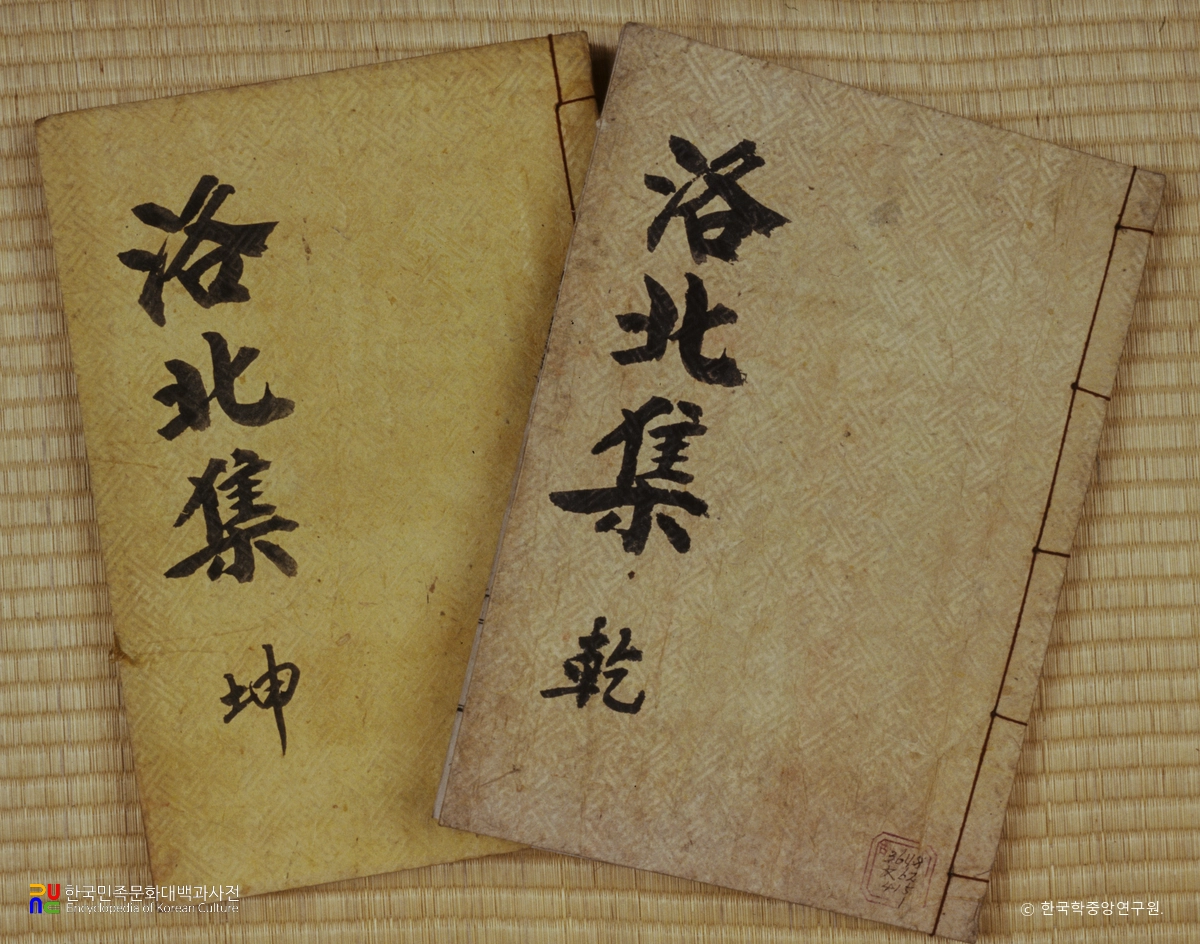 洛北集
坤
洛北集
乾
한국민족문화대백과사전
Encyclopedia of Korean Culture
ⓒ 한국학중앙연구원.